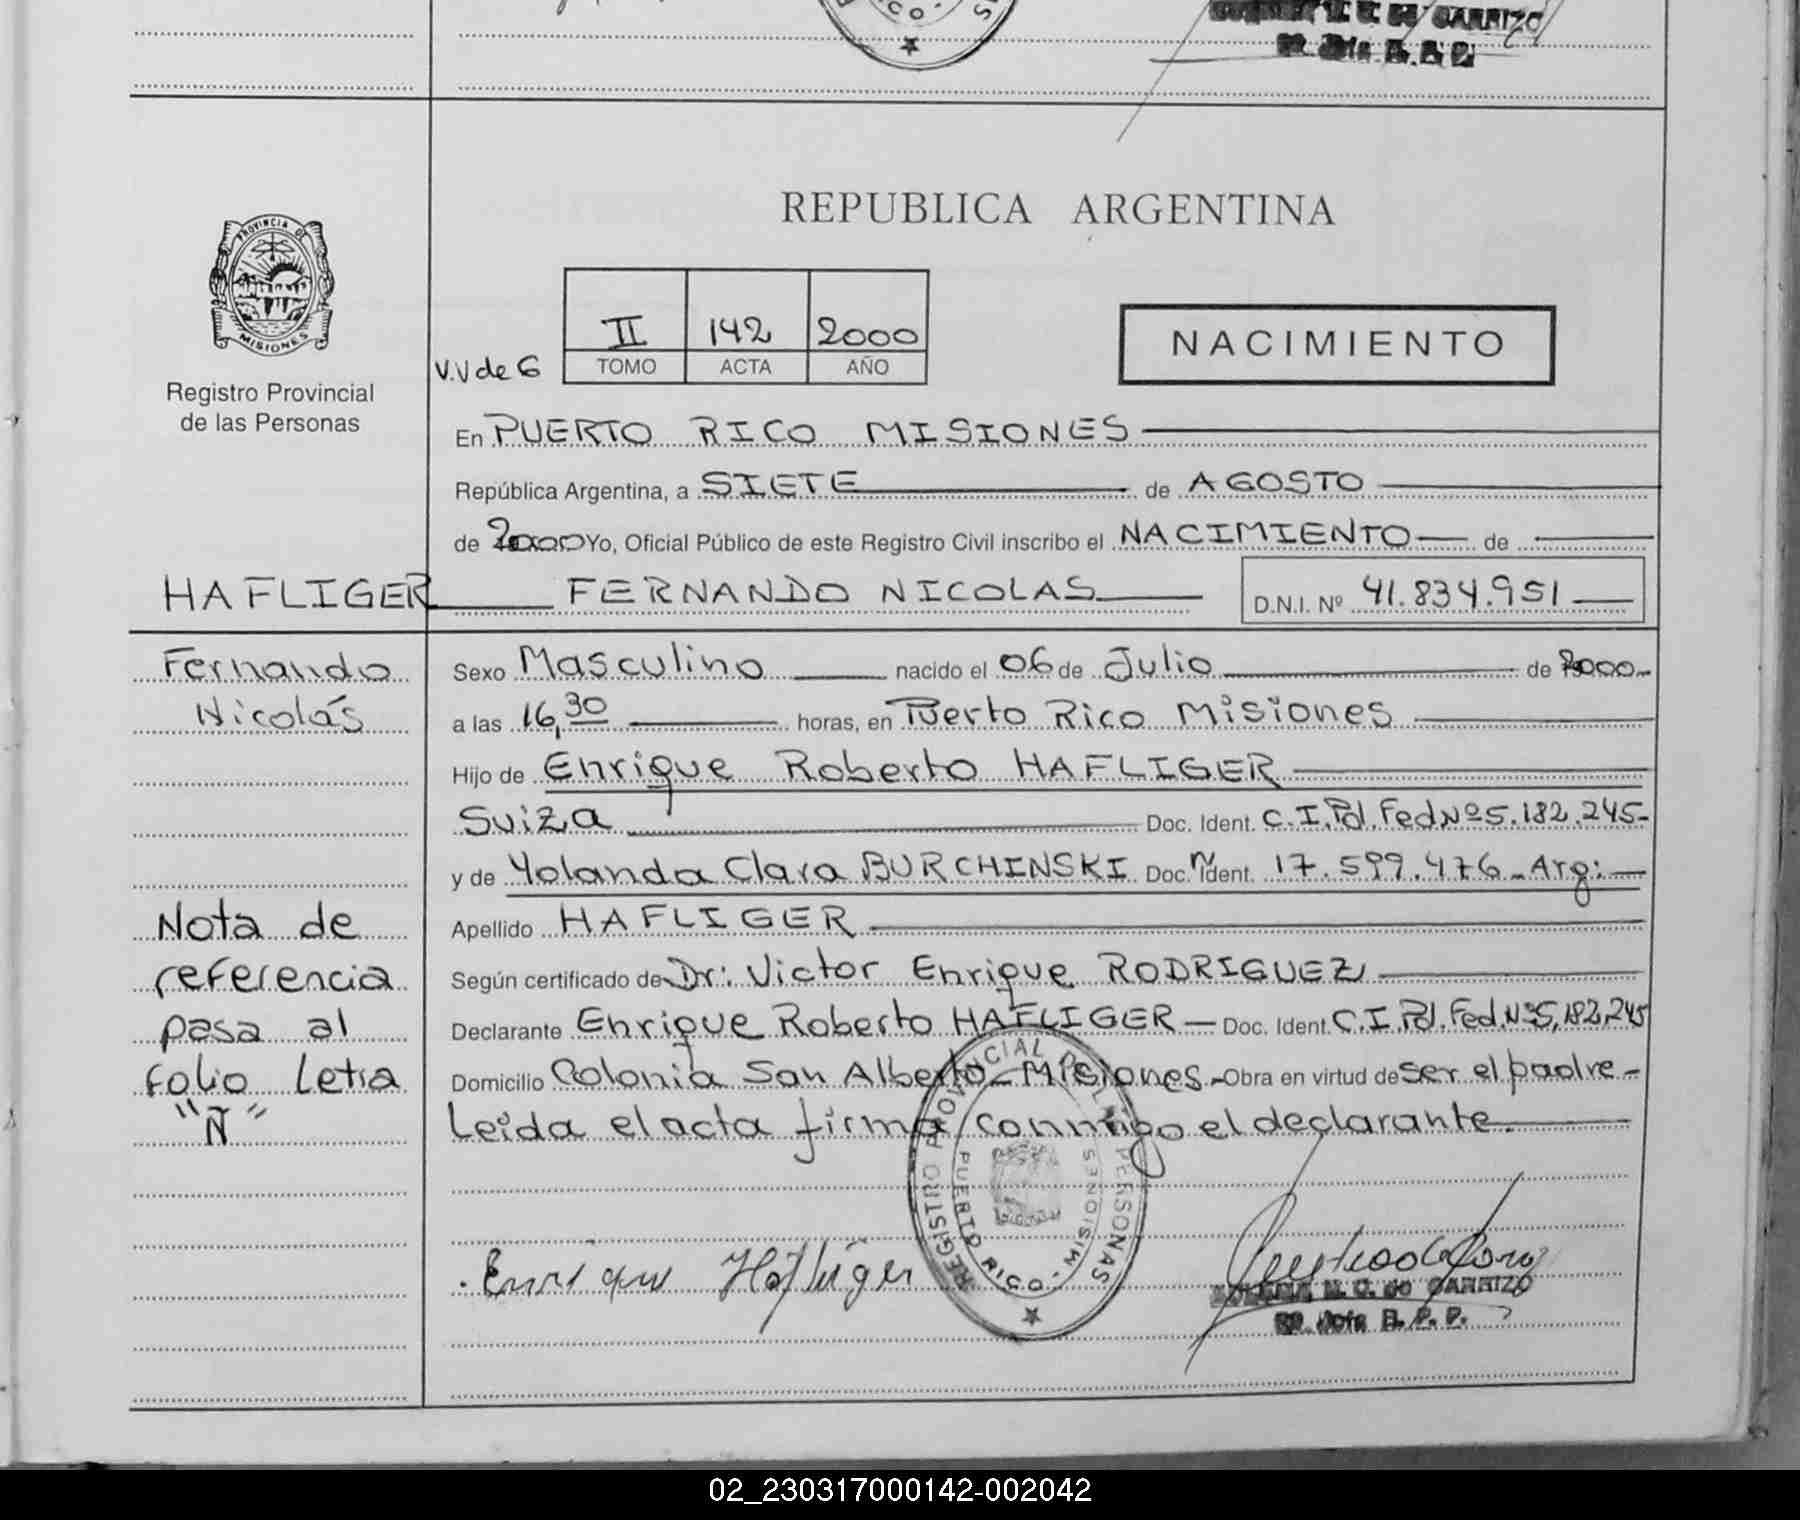 RICO
DE CARRIZO
REPUBLICA ARGENTINA
PROVINCIA DE
MISIONES
Registro Provincial
de las Personas
II 142 2000
V.V de 6 TOMO ACTA AÑO
NACIMIENTO
En PUERTO RICO MISIONES
República Argentina, a SIETE de AGOSTO
de 2000 Yo, Oficial Público de este Registro Civil inscribo el NACIMIENTO de
HAFLIGER FERNANDO NICOLAS D.N.I. Nº 41.834.951
Fernando
Nicolás
Sexo Masculino nacido el 06 de Julio de 2000-
a las 16,30 horas, en Puerto Rico Misiones
Hijo de Enrique Roberto HAFLIGER
Suiza Doc. Ident. C.I.Pol.Fed.Nº5.182.245-
y de Yolanda Clara BURCHINSKI Doc. Ident. 17.599.476- Arg:
Nota de
referencia
pasa al
folio Letra
"Ñ"
Apellido HAFLIGER
Según certificado de Dr: Victor Enrique RODRIGUEZ
Declarante Enrique Roberto HAFLIGER - Doc. Ident. C.I.Pol.Fed.Nº5,182,245
Domicilio Colonia San Alberto - Misiones.- Obra en virtud de ser el padre -
Leída el acta firma conmigo el declarante.
REGISTRO PROVINCIAL DE LAS PERSONAS
PUERTO RICO - MISIONES
Enrique Hafliger
M. C. de CARRIZO
R. P. P.
02_230317000142-002042